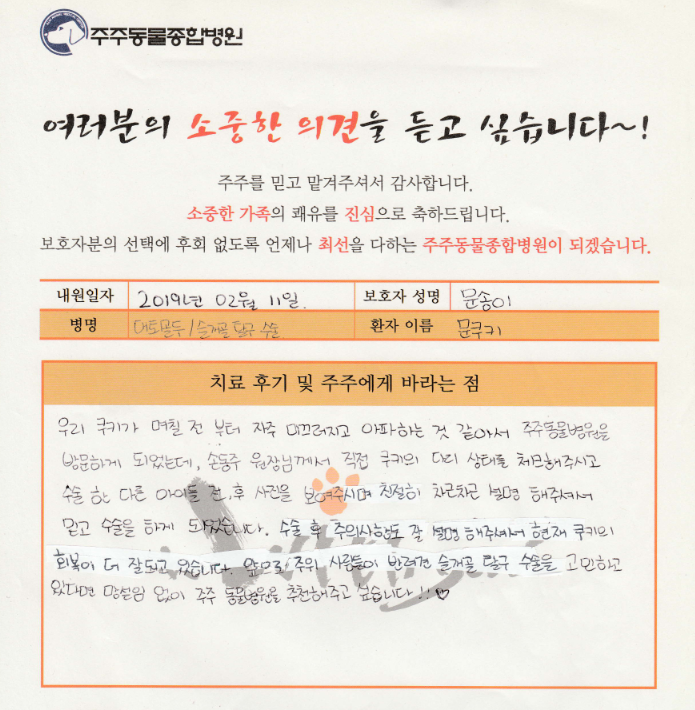 주주동물종합병원
여러분의 소중한 의견을 듣고 싶습니다~!
주주를 믿고 맡겨주셔서 감사합니다.
소중한 가족의 쾌유를 진심으로 축하드립니다.
보호자분의 선택에 후회 없도록 언제나 최선을 다하는 주주동물종합병원이 되겠습니다.
내원일자 2019년 02월 11일. 보호자 성명 문송이
병명 / 슬개골 탈구 수술 환자 이름 문쿠키
치료 후기 및 주주에게 바라는 점
우리 쿠키가 며칠 전 부터 자주 미끄러지고 아파하는 것 같아서 주주동물병원을
방문하게 되었는데, 손동주 원장님께서 직접 쿠키의 다리 상태를 체크해주시고
수술 한 다른 아이들 전,후 사진을 보여주시며 친절히 차근차근 설명 해주셔서
믿고 수술을 하게 되었습니다. 수술 후 주의사항도 잘 설명 해주셔서 현재 쿠키의
회복이 더 잘되고 있습니다. 앞으로 주위 사람들이 반려견 슬개골 탈구 수술을 고민하고
있다면 망설임 없이 주주 동물병원을 추천해주고 싶습니다!!♡